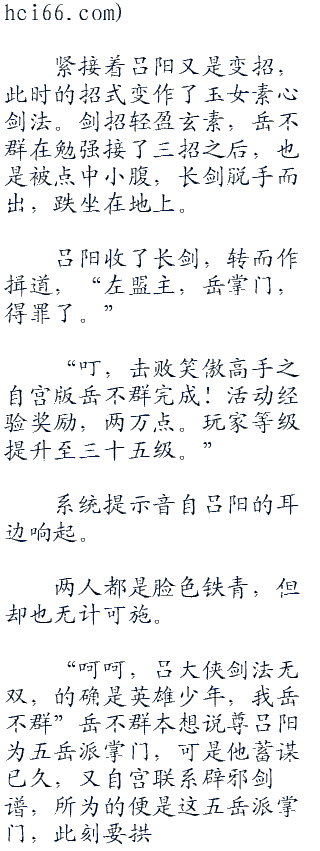 hci66.com)
紧接着吕阳又是变招，
此时的招式变作了玉女素心
剑法。剑招轻盈玄素，岳不
群在勉强接了三招之后，也
是被点中小腹，长剑脱手而
出，跌坐在地上。
吕阳收了长剑，转而作
揖道，“左盟主，岳掌门，
得罪了。”
“叮，击败笑傲高手之
自宫版岳不群完成！活动经
验奖励，两万点。玩家等级
提升至三十五级。”
系统提示音自吕阳的耳
边响起。
两人都是脸色铁青，但
却也无计可施。
“呵呵，吕大侠剑法无
双，的确是英雄少年，我岳
不群”岳不群本想说尊吕阳
为五岳派掌门，可是他蓄谋
已久，又自宫联系辟邪剑
谱，所为的便是这五岳派掌
门，此刻要拱